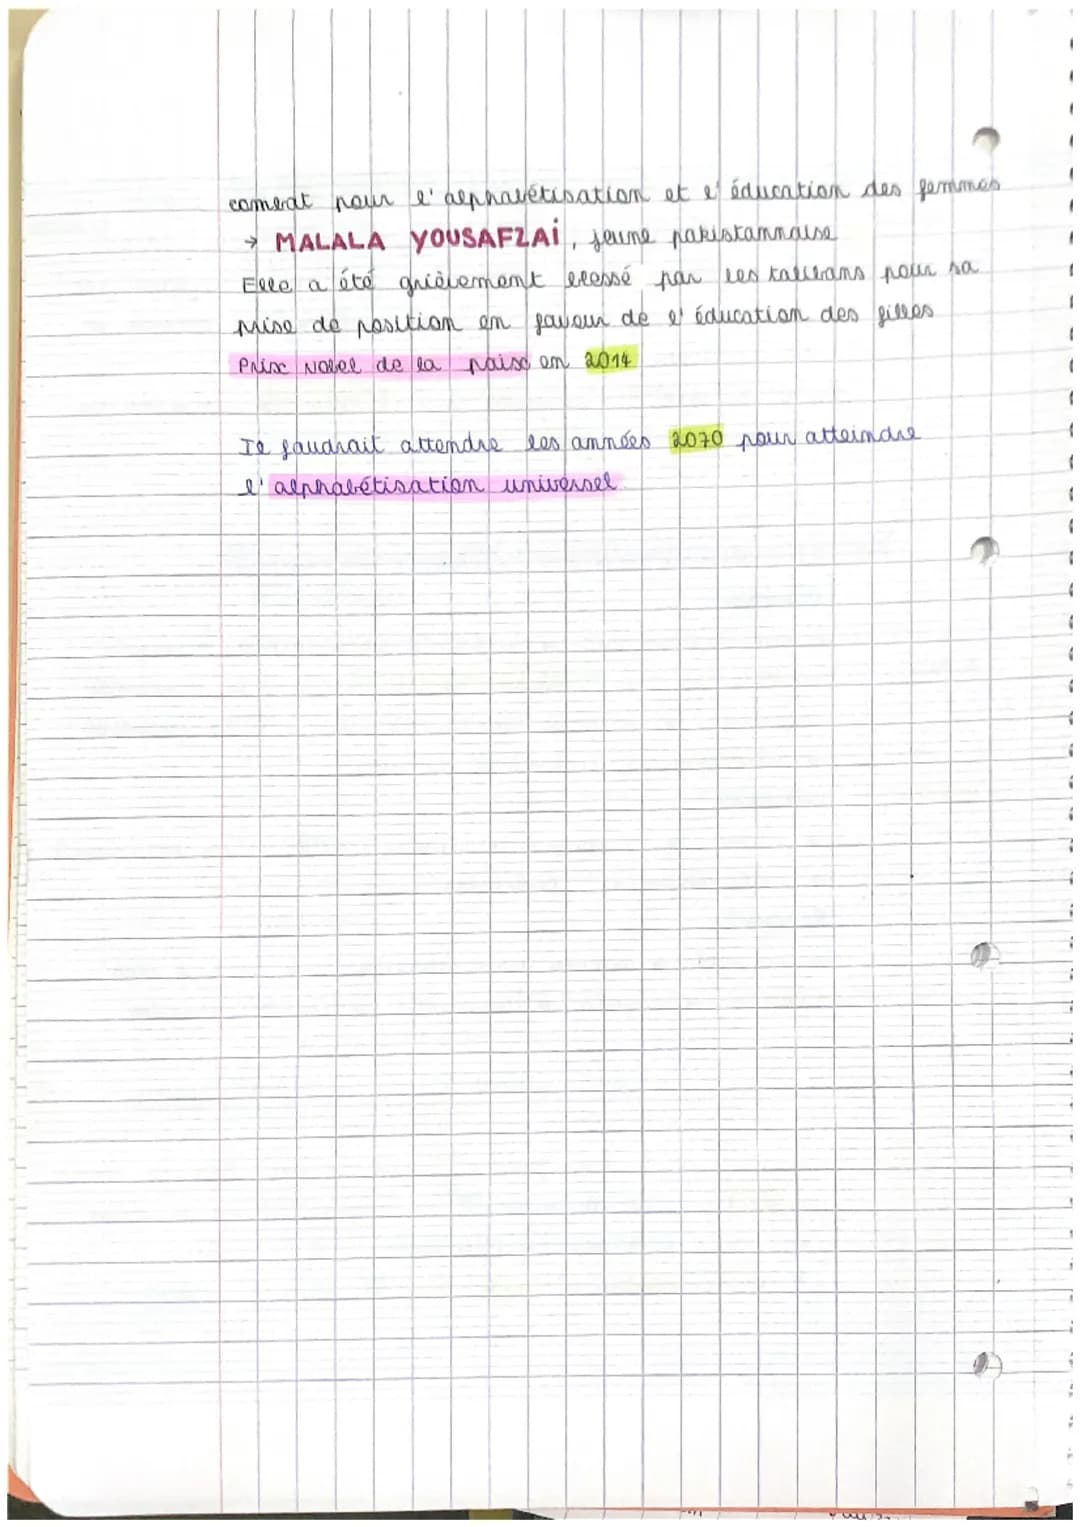 combat pour l'alphabétisation et l'éducation des femmes
→ MALALA YOUSAFZAI, jeune pakistannaise
Elle a été grièvement blessé par les talibans pour sa
mise de position en faveur de l'éducation des filles
Prix Nobel de la paix en 2014
Il faudrait attendre les années 2070 pour atteindre
l'alphabétisation universel